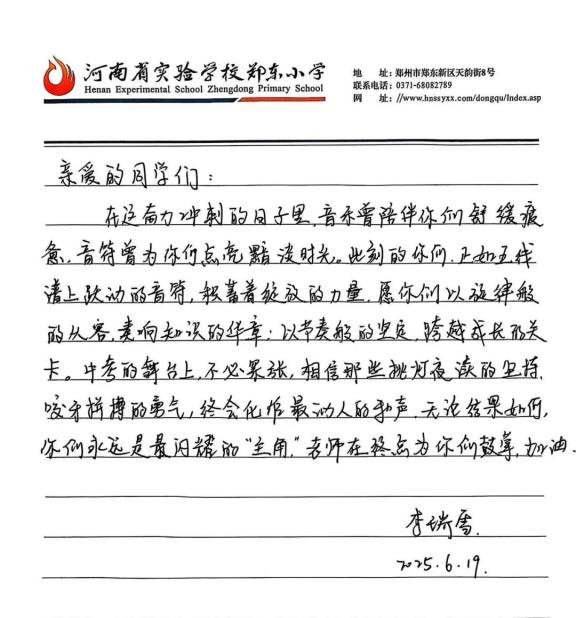 河南省实验学校郑东小学
Henan Experimental School Zhengdong Primary School
地 址:郑州市郑东新区天韵街8号
联系电话:0371-68082789
网 址://www.hnssyxx.com/dongqu/Index.asp
亲爱的同学们:
在这奋力冲刺的日子里,音乐曾陪伴你们舒缓疲
惫,音符曾为你们点亮黯淡时光。此刻的你们,正如五线
谱上跃动的音符,积蓄着绽放的力量,愿你们以旋律般
的从容,奏响知识的华章;以节奏般的坚定,跨越成长的关
卡。中考的舞台上,不必紧张,相信那些挑灯夜读的坚持,
咬牙拼搏的勇气,终会化作最动人的和声,无论结果如何,
你们永远是最闪耀的“主角。”老师在终点为你们鼓掌,加油.
李瑞雪.
2025.6.19.